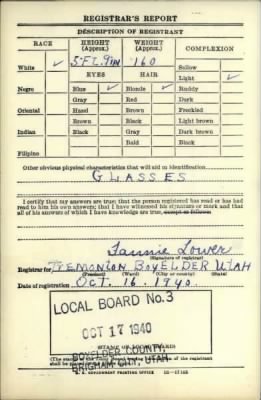 REGISTRAR'S REPORT
DESCRIPTION OF REGISTRANT
RACE HEIGHT (Approx.) WEIGHT (Approx.) COMPLEXION
White ✓ 5 FT. 9 IN 160 Sallow
EYES HAIR Light ✓
Negro Blue ✓ Blonde ✓ Ruddy
Gray Red Dark
Oriental Hazel Brown Freckled
Brown Black Light brown
Indian Black Gray Dark brown
Bald Black
Filipino
Other obvious physical characteristics that will aid in identification
GLASSES
I certify that my answers are true; that the person registered has read or has had
read to him his own answers; that I have witnessed his signature or mark and that
all of his answers of which I have knowledge are true, except as follows:
Fannie Lower
(Signature of registrar)
Registrar for TREMONTON BOXELDER UTAH
(Precinct) (Ward) (City or county) (State)
Date of registration OCT. 16. 1940
LOCAL BOARD No. 3
OCT 17 1940
BOXELDER COUNTY,
BRIGHAM CITY, UTAH.
(STAMP OF LOCAL BOARD)
U. S. GOVERNMENT PRINTING OFFICE